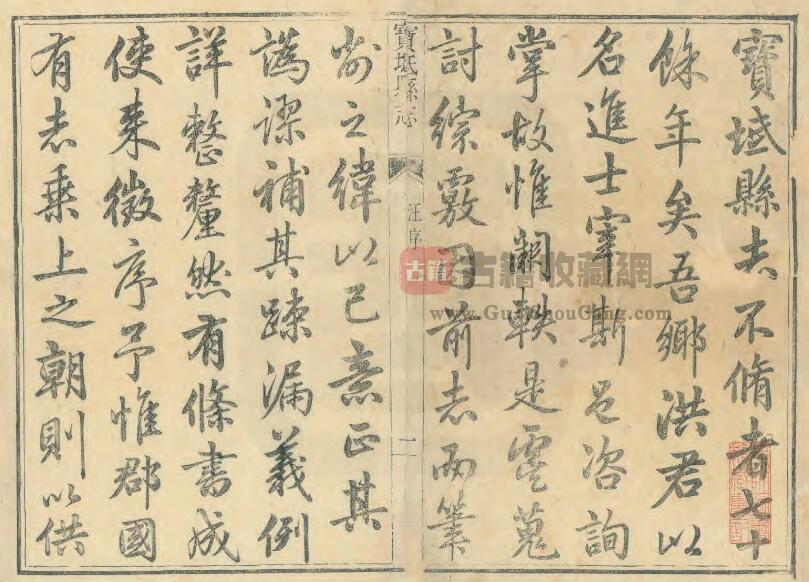 寶坻縣志不脩者七十
餘年矣吾鄉洪君以
名進士宰斯邑咨詢
掌故惟闕軼是虞蒐
討綜覈因前志而筆
寶坻縣志 汪序 一
削之緯以己意正其
譌謬補其踈漏義例
詳整釐然有條書成
使来徵序予惟郡國
有志乗上之朝則以供
古籍 古籍收藏網
www.GuJiShouCang.com